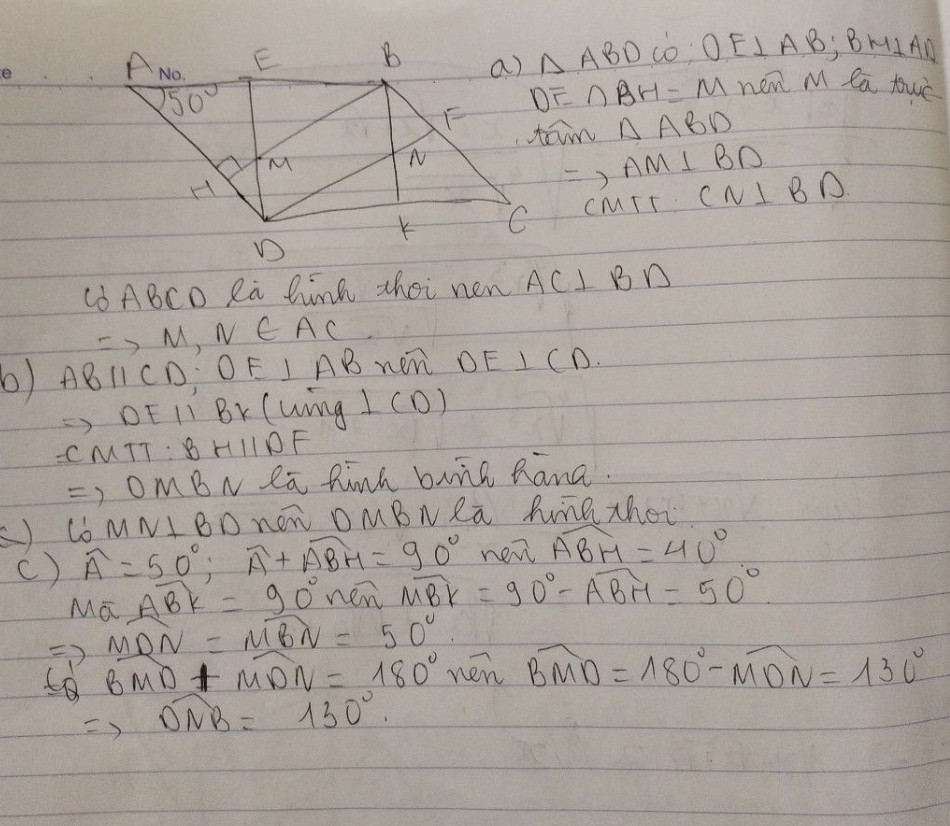 A No. E B
50°
F
M N
H
D K C
a) Δ ABD có DE⊥AB; BH⊥AD
DE∩BH=M nên M là trực
tâm Δ ABD
=> AM⊥BD
CMTT: CN⊥BD.
Có ABCD là hình thoi nên AC⊥BD
=> M, N ∈ AC.
b) AB//CD; DE⊥AB nên DE⊥CD.
=> DE//BK (cùng ⊥CD)
-CMTT: BH//DF
=> DMBN là hình bình hàng.
c) Có MN⊥BD nên DMBN là hình thoi.
c) Â=50°; Â+ABH=90° nên ABH=40°
Mà ABK=90° nên MBK=90°-ABH=50°.
=> MDN=MBN=50°.
Có BMD+MDN=180° nên BMD=180°-MDN=130°
=> DNB=130°.